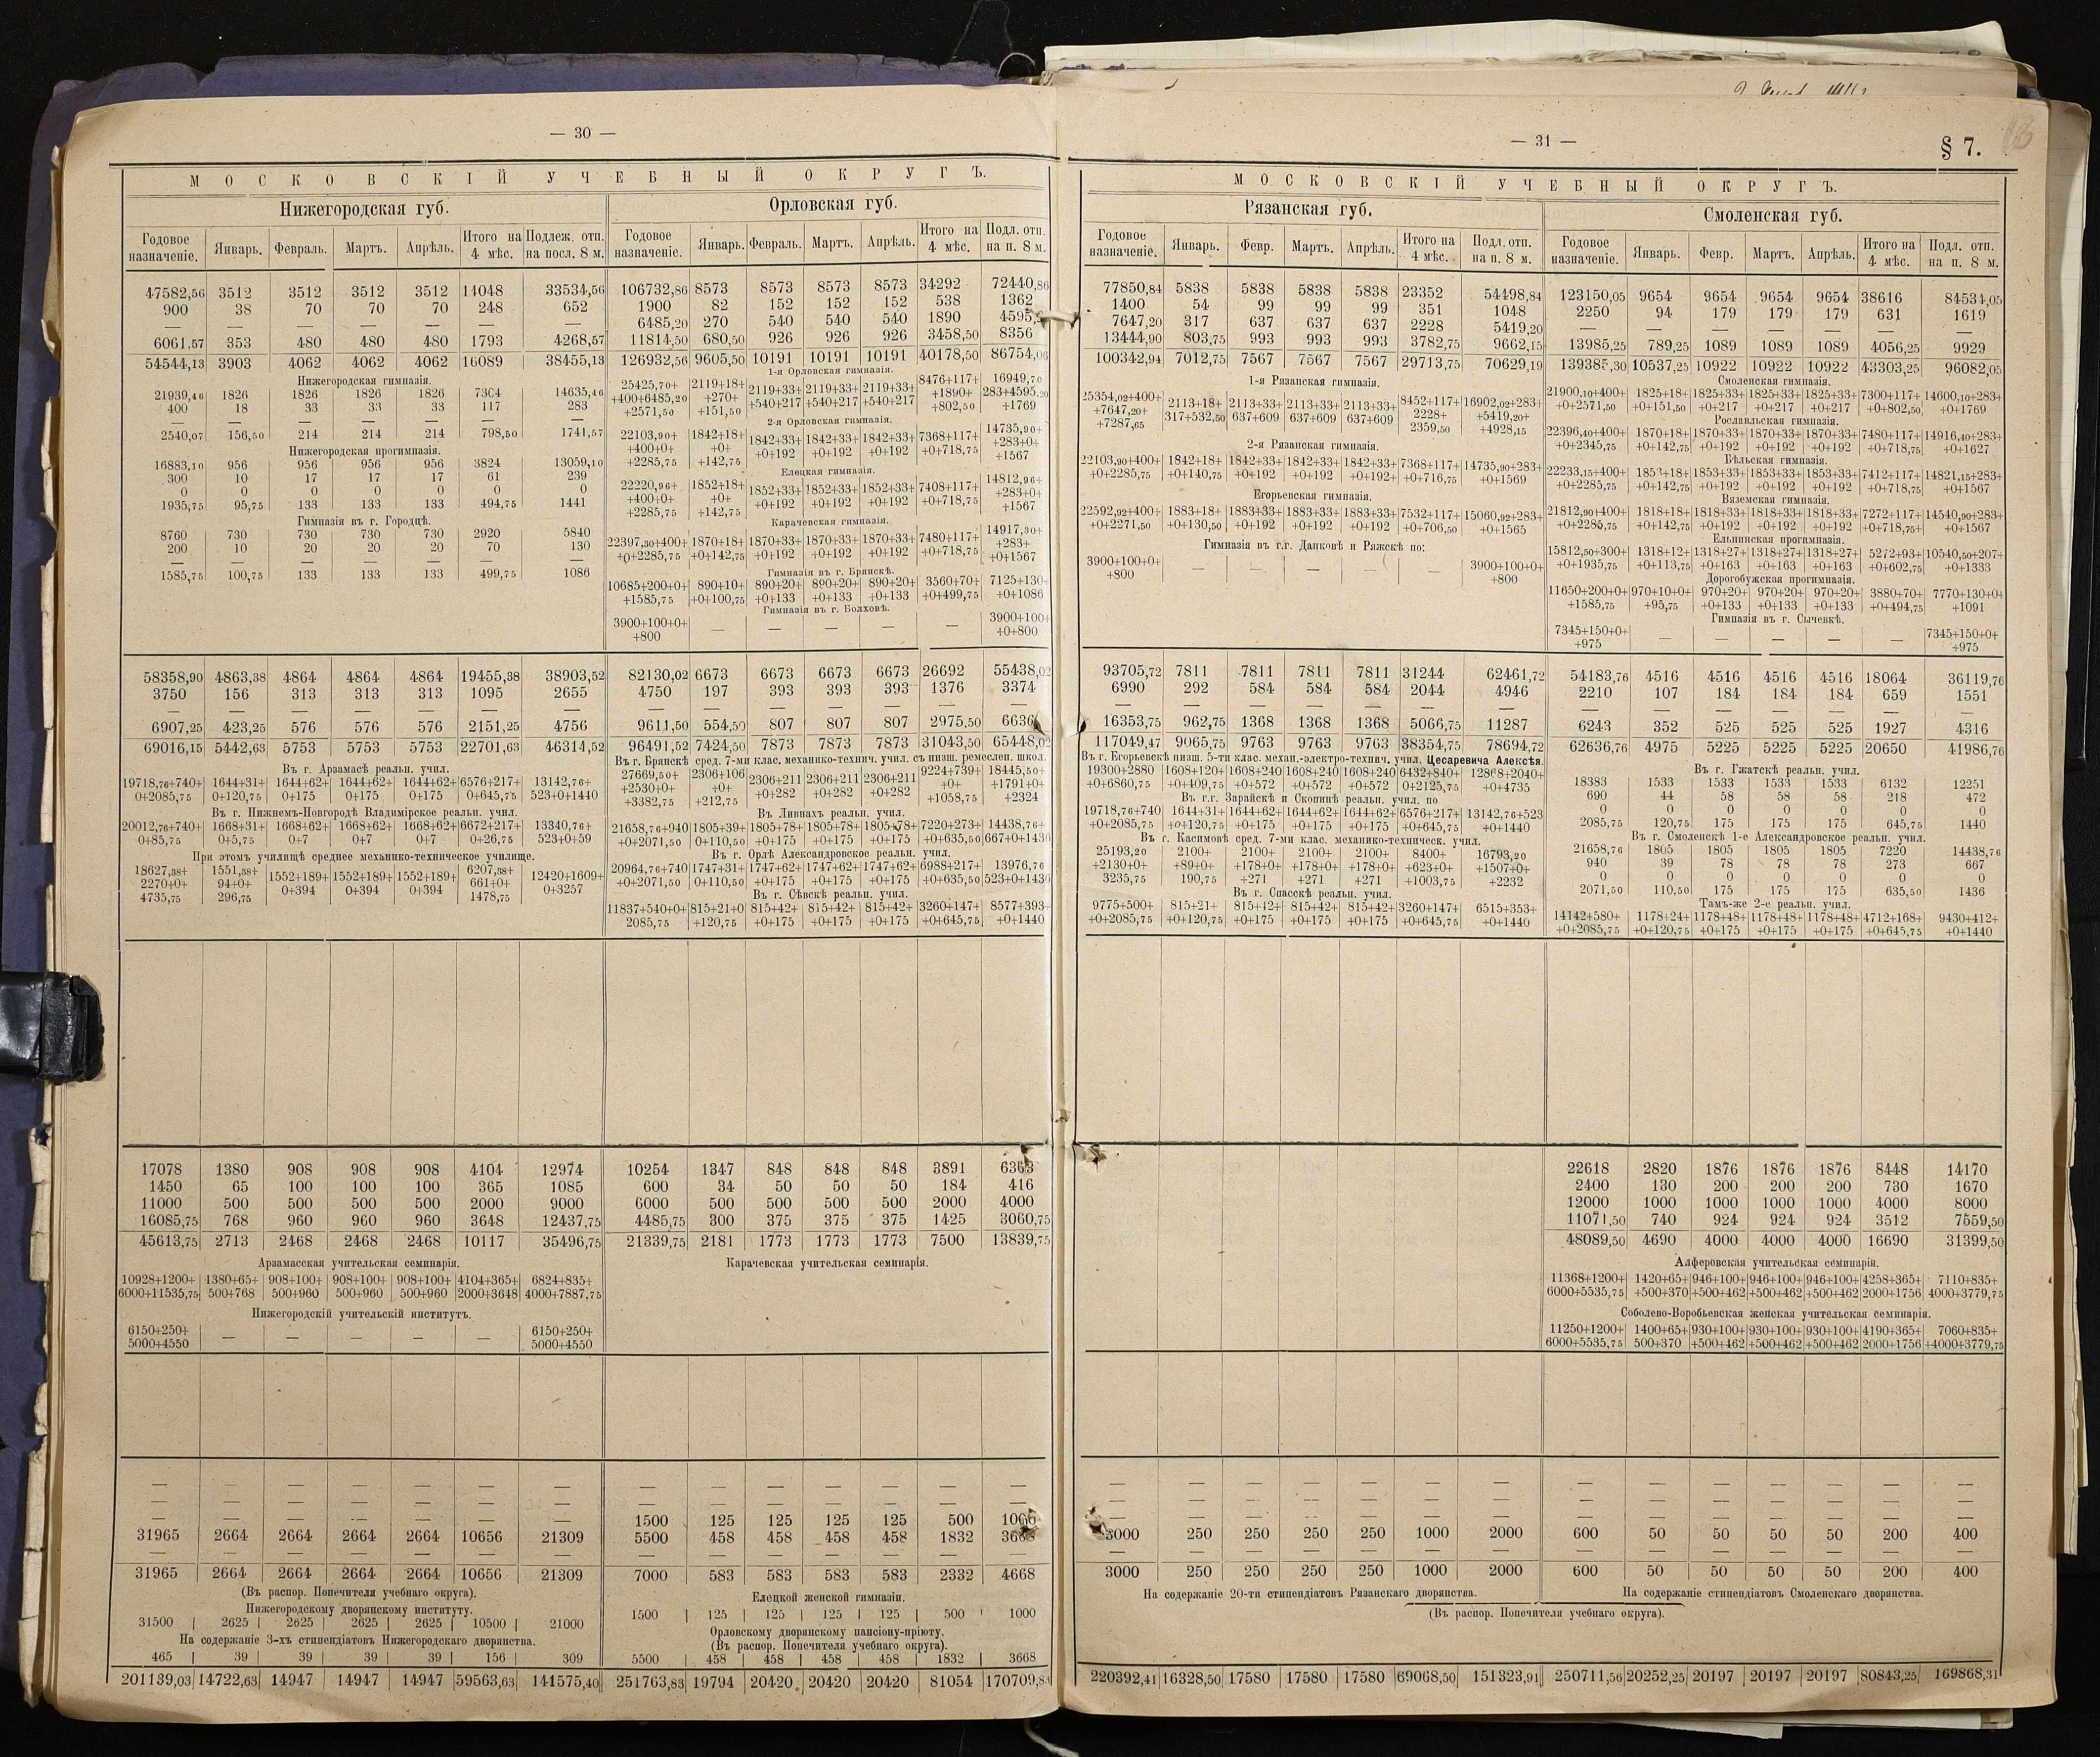 — 30 —
МОСКОВСКІЙ УЧЕБНЫЙ ОКРУГЪ.
Нижегородская губ. Орловская губ.
Годовое назначеніе. Январь. Февраль. Мартъ. Апрѣль. Итого на 4 мѣс. Подлеж. отп. на посл. 8 м. Годовое назначеніе. Январь. Февраль. Мартъ. Апрѣль. Итого на 4 мѣс. Подл. отп. на п. 8 м.
47582,56 3512 3512 3512 3512 14048 33534,56 106732,86 8573 8573 8573 8573 34292 72440,86
900 38 70 70 70 248 652 1900 82 152 152 152 538 1362
— — — — — — — 6485,20 270 540 540 540 1890
6061,57 353 480 480 480 1793 4268,57 11814,50 680,50 926 926 926 3458,50 8356
54544,13 3903 4062 4062 4062 16089 38455,13 126932,56 9605,50 10191 10191 10191 40178,50 86754,06
Нижегородская гимназія.
21939,46 1826 1826 1826 1826 7304 14635,46
400 18 33 33 33 117 283
— — — — — — —
2540,07 156,50 214 214 214 798,50 1741,57
Нижегородская прогимназія.
16883,10 956 956 956 956 3824 13059,10
300 10 17 17 17 61 239
0 0 0 0 0 0 0
1935,75 95,75 133 133 133 494,75 1441
Гимназія въ г. Городцѣ.
8760 730 730 730 730 2920 5840
200 10 20 20 20 70 130
— — — — — — —
1585,75 100,75 133 133 133 499,75 1086
1-я Орловская гимназія.
25425,70+ 2119+18+ 2119+33+ 2119+33+ 2119+33+ 8476+117+ 16949,70
+400+6485,20 +270+ +540+217 +540+217 +540+217 +1890+ 283+4595,20
+2571,50 +151,50 +802,50 +1769
2-я Орловская гимназія.
22103,90+ 1842+18+ 1842+33+ 1842+33+ 1842+33+ 7368+117+ 14735,90+
+400+0+ +0+ +0+192 +0+192 +0+192 +0+718,75 +283+0+
+2285,75 +142,75 +1567
Елецкая гимназія.
22220,96+ 1852+18+ 1852+33+ 1852+33+ 1852+33+ 7408+117+ 14812,96+
+400+0+ +0+ +0+192 +0+192 +0+192 +0+718,75 +283+0+
+2285,75 +142,75 +1567
Карачевская гимназія.
22397,30+400+ 1870+18+ 1870+33+ 1870+33+ 1870+33+ 7480+117+ 14917,30+
+0+2285,75 +0+142,75 +0+192 +0+192 +0+192 +0+718,75 +283+
+0+1567
Гимназія въ г. Брянскѣ.
10685+200+0+ 890+10+ 890+20+ 890+20+ 890+20+ 3560+70+ 7125+130+
+1585,75 +0+100,75 +0+133 +0+133 +0+133 +0+499,75 +0+1086
Гимназія въ г. Болховѣ.
3900+100+0+ — — — — — 3900+100+
+800 +0+800
58358,90 4863,38 4864 4864 4864 19455,38 38903,52 82130,02 6673 6673 6673 6673 26692 55438,02
3750 156 313 313 313 1095 2655 4750 197 393 393 393 1376 3374
— — — — — — — — — — — — — —
6907,25 423,25 576 576 576 2151,25 4756 9611,50 554,50 807 807 807 2975,50 6636
69016,15 5442,63 5753 5753 5753 22701,63 46314,52 96491,52 7424,50 7873 7873 7873 31043,50 65448,02
Въ г. Арзамасѣ реальн. учил.
19718,76+740+ 1644+31+ 1644+62+ 1644+62+ 1644+62+ 6576+217+ 13142,76+
0+2085,75 0+120,75 0+175 0+175 0+175 0+645,75 523+0+1440
Въ г. Нижнемъ-Новгородѣ Владимірское реальн. учил.
20012,76+740+ 1668+31+ 1668+62+ 1668+62+ 1668+62+ 6672+217+ 13340,76+
0+85,75 0+5,75 0+7 0+7 0+7 0+26,75 523+0+59
При этомъ училищѣ среднее механико-техническое училище.
18627,38+ 1551,38+ 1552+189+ 1552+189+ 1552+189+ 6207,38+ 12420+1609+
2270+0+ 94+0+ 0+394 0+394 0+394 661+0+ 0+3257
4735,75 296,75 1478,75
Въ г. Брянскѣ сред. 7-ми клас. механико-технич. учил. съ низш. ремеслен. школ.
27669,50+ 2306+106 2306+211 2306+211 2306+211 9224+739+ 18445,50+
+2530+0+ +0+ +0+282 +0+282 +0+282 +0+ +1791+0+
+3382,75 +212,75 +1058,75 +2324
Въ Ливнахъ реальн. учил.
21658,76+940 1805+39+ 1805+78+ 1805+78+ 1805+78+ 7220+273+ 14438,76+
+0+2071,50 0+110,50 +0+175 +0+175 +0+175 +0+635,50 667+0+1436
Въ г. Орлѣ Александровское реальн. учил.
20964,76+740 1747+31+ 1747+62+ 1747+62+ 1747+62+ 6988+217+ 13976,76
+0+2071,50 0+110,50 +0+175 +0+175 +0+175 +0+635,50 523+0+1436
Въ г. Сѣвскѣ реальн. учил.
11837+540+0+ 815+21+0 815+42+ 815+42+ 815+42+ 3260+147+ 8577+393+
2085,75 +120,75 +0+175 +0+175 +0+175 +0+645,75 +0+1440
17078 1380 908 908 908 4104 12974 10254 1347 848 848 848 3891 6363
1450 65 100 100 100 365 1085 600 34 50 50 50 184 416
11000 500 500 500 500 2000 9000 6000 500 500 500 500 2000 4000
16085,75 768 960 960 960 3648 12437,75 4485,75 300 375 375 375 1425 3060,75
45613,75 2713 2468 2468 2468 10117 35496,75 21339,75 2181 1773 1773 1773 7500 13839,75
Арзамасская учительская семинарія. Карачевская учительская семинарія.
10928+1200+ 1380+65+ 908+100+ 908+100+ 908+100+ 4104+365+ 6824+835+
6000+11535,75 500+768 500+960 500+960 500+960 2000+3648 4000+7887,75
Нижегородскій учительскій институтъ.
6150+250+ — — — — — 6150+250+
5000+4550 5000+4550
— — — — — — — — — — — — — —
— — — — — — — — — — — — — —
— — — — — — — 1500 125 125 125 125 500
31965 2664 2664 2664 2664 10656 21309 5500 458 458 458 458 1832 3668
— — — — — — — — — — — — — —
31965 2664 2664 2664 2664 10656 21309 7000 583 583 583 583 2332 4668
(Въ распор. Попечителя учебнаго округа).
Нижегородскому дворянскому институту.
31500 2625 2625 2625 2625 10500 21000
На содержаніе 3-хъ стипендіатовъ Нижегородскаго дворянства.
465 39 39 39 39 156 309
Елецкой женской гимназіи.
1500 125 125 125 125 500 1000
Орловскому дворянскому пансіону-пріюту.
(Въ распор. Попечителя учебнаго округа).
5500 458 458 458 458 1832 3668
201139,03 14722,63 14947 14947 14947 59563,63 141575,40 251763,83 19794 20420 20420 20420 81054 170709,83
— 31 —
§ 7.
МОСКОВСКІЙ УЧЕБНЫЙ ОКРУГЪ.
Рязанская губ. Смоленская губ.
Годовое назначеніе. Январь. Февр. Мартъ. Апрѣль. Итого на 4 мѣс. Подл. отп. на п. 8 м. Годовое назначеніе. Январь. Февр. Мартъ. Апрѣль. Итого на 4 мѣс. Подл. отп. на п. 8 м.
77850,84 5838 5838 5838 5838 23352 54498,84 123150,05 9654 9654 9654 9654 38616 84534,05
1400 54 99 99 99 351 1048 2250 94 179 179 179 631 1619
7647,20 317 637 637 637 2228 5419,20 — — — — — — —
13444,90 803,75 993 993 993 3782,75 9662,15 13985,25 789,25 1089 1089 1089 4056,25 9929
100342,94 7012,75 7567 7567 7567 29713,75 70629,19 139385,30 10537,25 10922 10922 10922 43303,25 96082,05
1-я Рязанская гимназія.
25354,02+400+ 2113+18+ 2113+33+ 2113+33+ 2113+33+ 8452+117+ 16902,02+283+
+7647,20+ 317+532,50 637+609 637+609 637+609 2228+ +5419,20+
+7287,65 2359,50 +4928,15
2-я Рязанская гимназія.
22103,90+400+ 1842+18+ 1842+33+ 1842+33+ 1842+33+ 7368+117+ 14735,90+283+
+0+2285,75 +0+140,75 +0+192 +0+192 +0+192 +0+716,75 +0+1569
Егорьевская гимназія.
22592,92+400+ 1883+18+ 1883+33+ 1883+33+ 1883+33+ 7532+117+ 15060,92+283+
+0+2271,50 +0+130,50 +0+192 +0+192 +0+192 +0+706,50 +0+1565
Гимназія въ г.г. Данковѣ и Ряжскѣ по:
3900+100+0+ — — — — — 3900+100+0+
+800 +800
Смоленская гимназія.
21900,10+400+ 1825+18+ 1825+33+ 1825+33+ 1825+33+ 7300+117+ 14600,10+283+
+0+2571,50 +0+151,50 +0+217 +0+217 +0+217 +0+802,50 +0+1769
Рославльская гимназія.
22396,40+400+ 1870+18+ 1870+33+ 1870+33+ 1870+33+ 7480+117+ 14916,40+283+
+0+2345,75 +0+142,75 +0+192 +0+192 +0+192 +0+718,75 +0+1627
Бѣльская гимназія.
22233,15+400+ 1853+18+ 1853+33+ 1853+33+ 1853+33+ 7412+117+ 14821,15+283+
+0+2285,75 +0+142,75 +0+192 +0+192 +0+192 +0+718,75 +0+1567
Вяземская гимназія.
21812,90+400+ 1818+18+ 1818+33+ 1818+33+ 1818+33+ 7272+117+ 14540,90+283+
+0+2285,75 +0+142,75 +0+192 +0+192 +0+192 +0+718,75+ +0+1567
Ельнинская прогимназія.
15812,50+300+ 1318+12+ 1318+27+ 1318+27+ 1318+27+ 5272+93+ 10540,50+207+
+0+1935,75 +0+113,75 +0+163 +0+163 +0+163 +0+602,75 +0+1333
Дорогобужская прогимназія.
11650+200+0+ 970+10+0+ 970+20+ 970+20+ 970+20+ 3880+70+ 7770+130+0+
+1585,75 +95,75 +0+133 +0+133 +0+133 +0+494,75 +1091
Гимназія въ г. Сычевкѣ.
7345+150+0+ — — — — — 7345+150+0+
+975 +975
93705,72 7811 7811 7811 7811 31244 62461,72 54183,76 4516 4516 4516 4516 18064 36119,76
6990 292 584 584 584 2044 4946 2210 107 184 184 184 659 1551
— — — — — — — — — — — — — —
16353,75 962,75 1368 1368 1368 5066,75 11287 6243 352 525 525 525 1927 4316
117049,47 9065,75 9763 9763 9763 38354,75 78694,72 62636,76 4975 5225 5225 5225 20650 41986,76
Въ г. Егорьевскѣ низш. 5-ти клас. механ.-электро-технич. учил. Цесаревича Алексѣя.
19300+2880 1608+120+ 1608+240 1608+240 1608+240 6432+840+ 12868+2040+
+0+6860,75 +0+409,75 +0+572 +0+572 +0+572 0+2125,75 +0+4735
Въ г.г. Зарайскѣ и Скопинѣ реальн. учил. по
19718,76+740 1644+31+ 1644+62+ 1644+62+ 1644+62+ 6576+217+ 13142,76+523
+0+2085,75 +0+120,75 +0+175 +0+175 +0+175 +0+645,75 +0+1440
Въ г. Касимовѣ сред. 7-ми клас. механико-техническ. учил.
25193,20 2100+ 2100+ 2100+ 2100+ 8400+ 16793,20
+2130+0+ +89+0+ +178+0+ +178+0+ +178+0+ +623+0+ +1507+0+
3235,75 190,75 +271 +271 +271 +1003,75 +2232
Въ г. Спасскѣ реальн. учил.
9775+500+ 815+21+ 815+42+ 815+42+ 815+42+ 3260+147+ 6515+353+
+0+2085,75 +0+120,75 +0+175 +0+175 +0+175 +0+645,75 +0+1440
Въ г. Гжатскѣ реальн. учил.
18383 1533 1533 1533 1533 6132 12251
690 44 58 58 58 218 472
0 0 0 0 0 0 0
2085,75 120,75 175 175 175 645,75 1440
Въ г. Смоленскѣ 1-е Александровское реальн. учил.
21658,76 1805 1805 1805 1805 7220 14438,76
940 39 78 78 78 273 667
0 0 0 0 0 0 0
2071,50 110,50 175 175 175 635,50 1436
Тамъ-же 2-е реальн. учил.
14142+580+ 1178+24+ 1178+48+ 1178+48+ 1178+48+ 4712+168+ 9430+412+
+0+2085,75 +0+120,75 +0+175 +0+175 +0+175 +0+645,75 +0+1440
22618 2820 1876 1876 1876 8448 14170
2400 130 200 200 200 730 1670
12000 1000 1000 1000 1000 4000 8000
11071,50 740 924 924 924 3512 7559,50
48089,50 4690 4000 4000 4000 16690 31399,50
Алферовская учительская семинарія.
11368+1200+ 1420+65+ 946+100+ 946+100+ 946+100+ 4258+365+ 7110+835+
6000+5535,75 +500+370 +500+462 +500+462 +500+462 2000+1756 4000+3779,75
Соболево-Воробьевская женская учительская семинарія.
11250+1200+ 1400+65+ 930+100+ 930+100+ 930+100+ 4190+365+ 7060+835+
6000+5535,75 500+370 +500+462 +500+462 +500+462 2000+1756 +4000+3779,75
— — — — — — — — — — — — — —
— — — — — — — — — — — — — —
— — — — — — — — — — — — — —
3000 250 250 250 250 1000 2000 600 50 50 50 50 200 400
— — — — — — — — — — — — — —
3000 250 250 250 250 1000 2000 600 50 50 50 50 200 400
На содержаніе 20-ти стипендіатовъ Рязанскаго дворянства. На содержаніе стипендіатовъ Смоленскаго дворянства.
(Въ распор. Попечителя учебнаго округа).
220392,41 16328,50 17580 17580 17580 69068,50 151323,91 250711,56 20252,25 20197 20197 20197 80843,25 169868,31